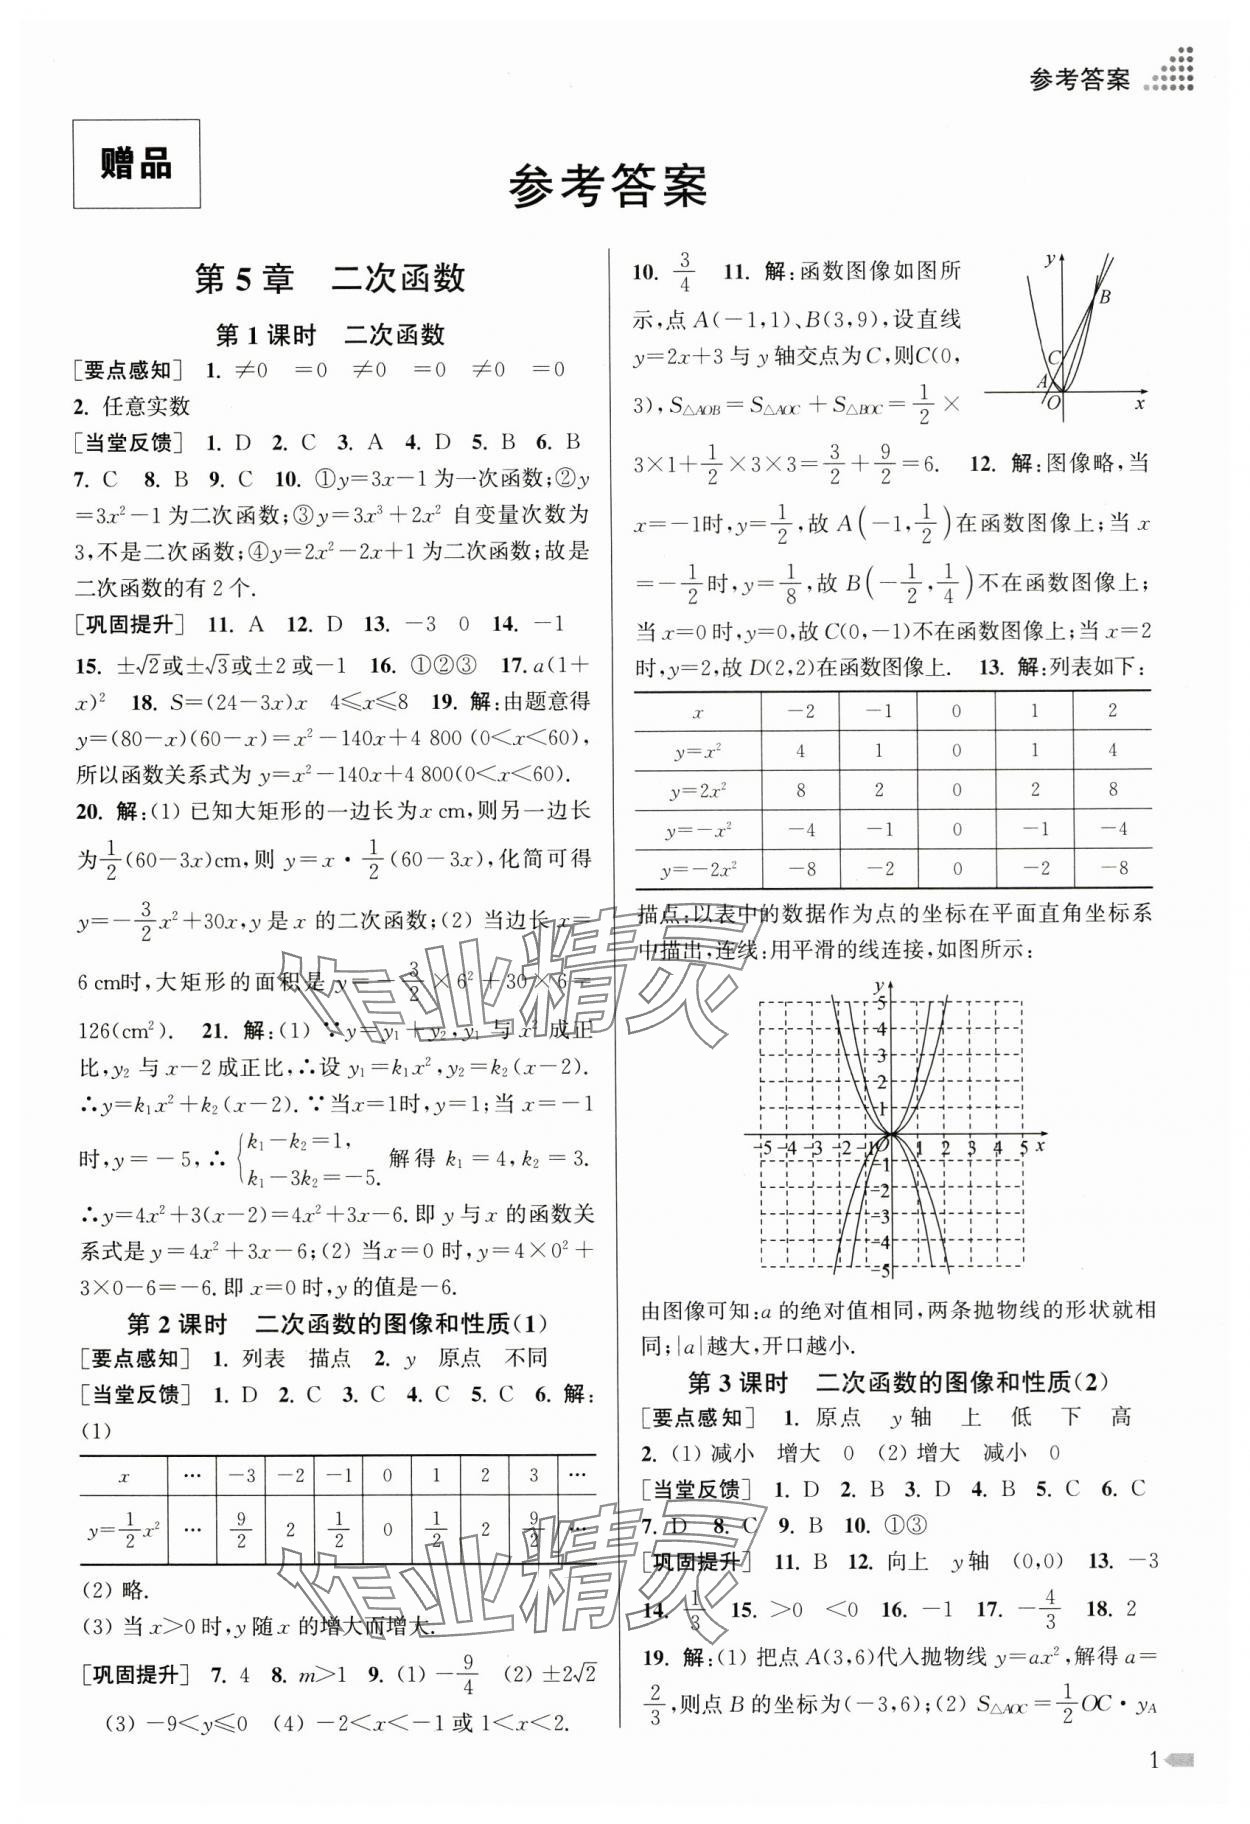 参考答案
赠品
参考答案
第5章 二次函数
第1课时 二次函数
[要点感知] 1. ≠0 =0 ≠0 =0 ≠0 =0
2. 任意实数
[当堂反馈] 1. D 2. C 3. A 4. D 5. B 6. B
7. C 8. B 9. C 10. ①y=3x-1为一次函数;②y
=3x²-1为二次函数;③y=3x³+2x² 自变量次数为
3,不是二次函数;④y=2x²-2x+1为二次函数;故是
二次函数的有2个.
[巩固提升] 11. A 12. D 13. -3 0 14. -1
15. ±√2或±√3或±2或-1 16. ①②③ 17. a(1+
x)² 18. S=(24-3x)x 4≤x≤8 19. 解:由题意得
y=(80-x)(60-x)=x²-140x+4 800 (0<x<60),
所以函数关系式为 y=x²-140x+4 800(0<x<60).
20. 解:(1) 已知大矩形的一边长为x cm,则另一边长
为1/2(60-3x)cm,则 y=x·1/2(60-3x),化简可得
y=-3/2x²+30x,y是x的二次函数;(2) 当边长 x=
6 cm时,大矩形的面积是 y=-3/2×6²+30×6=
126(cm²). 21. 解:(1) ∵y=y₁+y₂,y₁与x²成正
比,y₂与x-2成正比,∴设 y₁=k₁x²,y₂=k₂(x-2).
∴y=k₁x²+k₂(x-2).∵当x=1时,y=1;当 x=-1
时,y=-5,∴{k₁-k₂=1, k₁-3k₂=-5. 解得 k₁=4,k₂=3.
∴y=4x²+3(x-2)=4x²+3x-6.即y与x的函数关
系式是y=4x²+3x-6;(2) 当x=0时,y=4×0²+
3×0-6=-6.即x=0时,y的值是-6.
第2课时 二次函数的图像和性质(1)
[要点感知] 1. 列表 描点 2. y 原点 不同
[当堂反馈] 1. D 2. C 3. C 4. C 5. C 6. 解:
(1)
x … -3 -2 -1 0 1 2 3 …
y=1/2x² … 9/2 2 1/2 0 1/2 2 9/2 …
(2) 略.
(3) 当x>0时,y随x的增大而增大.
[巩固提升] 7. 4 8. m>1 9. (1) -9/4 (2) ±2√2
(3) -9<y≤0 (4) -2<x<-1或1<x<2.
10. 3/4 11. 解:函数图像如图所
示,点A(-1,1)、B(3,9),设直线
y=2x+3与y轴交点为C,则C(0,
3),S△AOB=S△AOC+S△BOC=1/2×
y B C A O x
3×1+1/2×3×3=3/2+9/2=6. 12. 解:图像略,当
x=-1时,y=1/2,故A(-1,1/2)在函数图像上;当x
=-1/2时,y=1/8,故B(-1/2,1/4)不在函数图像上;
当x=0时,y=0,故C(0,-1)不在函数图像上;当x=2
时,y=2,故D(2,2)在函数图像上. 13. 解:列表如下:
x -2 -1 0 1 2
y=x² 4 1 0 1 4
y=2x² 8 2 0 2 8
y=-x² -4 -1 0 -1 -4
y=-2x² -8 -2 0 -2 -8
描点:以表中的数据作为点的坐标在平面直角坐标系
中描出,连线:用平滑的线连接,如图所示:
y
5
4
3
2
1
-5 -4 -3 -2 -1 O 1 2 3 4 5 x
-1
-2
-3
-4
-5
由图像可知:a的绝对值相同,两条抛物线的形状就相
同;|a|越大,开口越小.
第3课时 二次函数的图像和性质(2)
[要点感知] 1. 原点 y轴 上 低 下 高
2. (1) 减小 增大 0 (2) 增大 减小 0
[当堂反馈] 1. D 2. B 3. D 4. B 5. C 6. C
7. D 8. C 9. B 10. ①③
[巩固提升] 11. B 12. 向上 y轴 (0,0) 13. -3
14. 1/3 15. >0 <0 16. -1 17. -4/3 18. 2
19. 解:(1) 把点A(3,6)代入抛物线y=ax²,解得a=
2/3,则点B的坐标为(-3,6);(2) S△AOC=1/2OC·yA
作业精灵
作业精灵
1